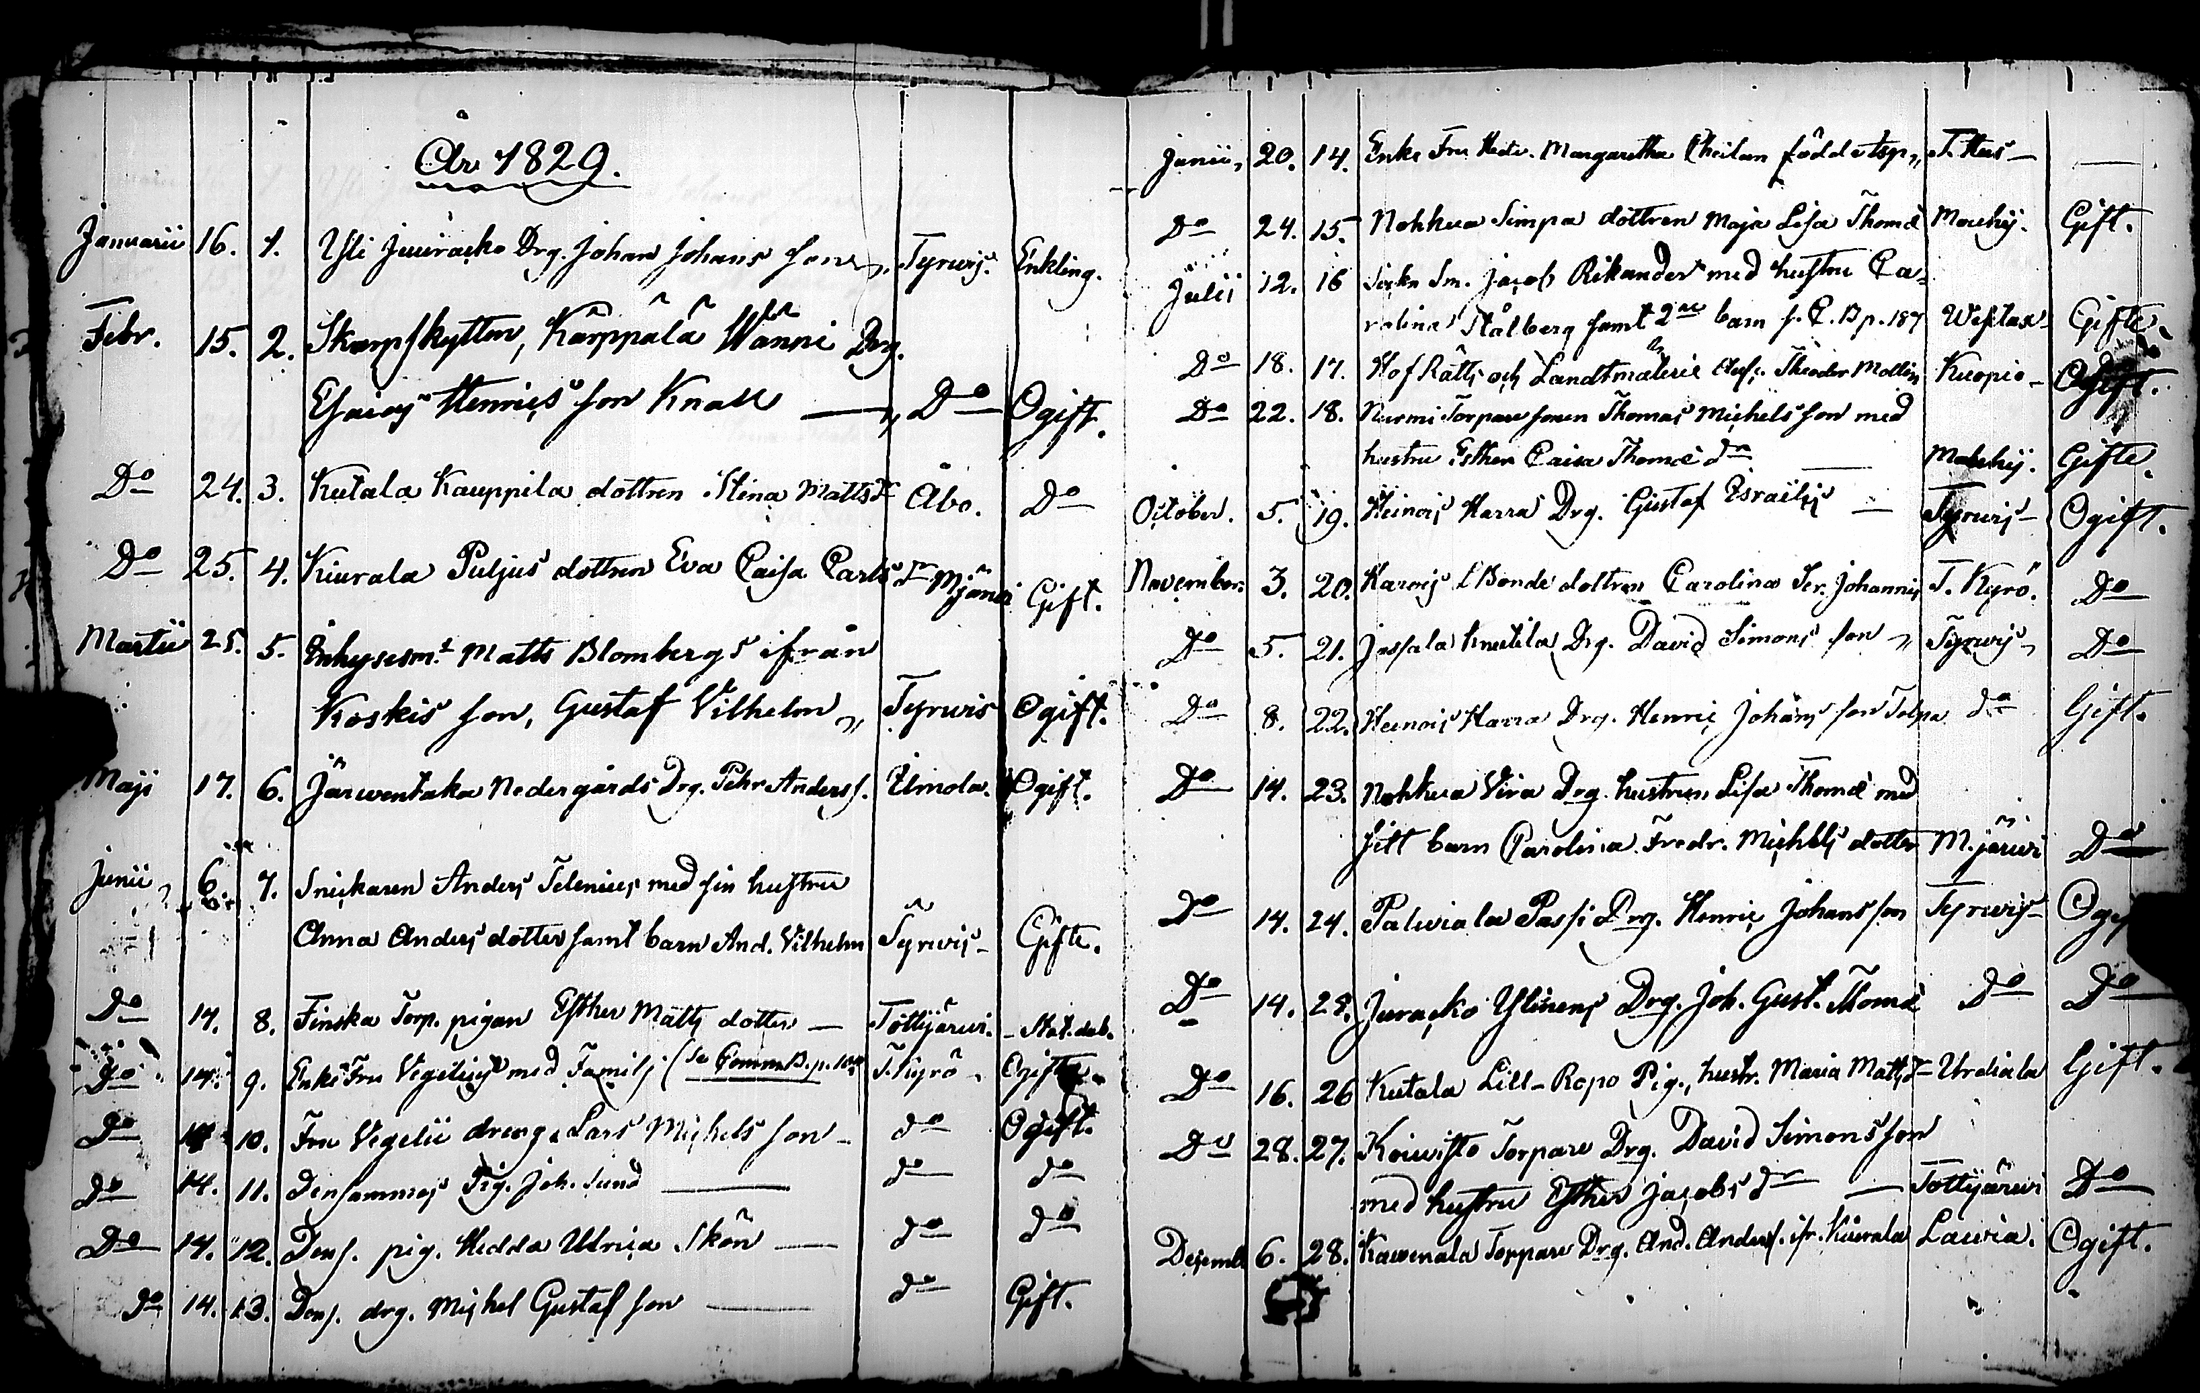 År 1829.
Januarii 16. 1. Yli Juuracko Drg. Johan Johans son „ Tyrwis. Enkling.
Febr. 15. 2. Skarpskytten, Karppälä Wänni Drg.
Esaias Henrics son Knall — „ Do Ogift.
Do 24. 3. Kutala Kauppila dottren Stina Matts dr Åbo. Do
Do 25. 4. Kiurala Puljus dottren Eva Caisa Carls dr Gift.
Martii 25. 5. Inhysesm:s Matts Blombergs ifrån
Koskis son, Gustaf Vilhelm „ Tyrwis Ogift.
Maji 17. 6. Järwentaka Nedergårds Drg. Pehr Anders s. Ulmola. Ogift.
Junii 6. 7. Snickaren Anders Telenius med sin hustru
Anna Anders dotter samt barn And. Vilhelm Tyrwis – Gifte.
Do 14. 8. Finska Torp. pigan Esther Matts dotter — Tottijärwi.
Do 14. 9. Enke Fru Vegelius med Familj (se Comm. B. p. T. Kyrö.
Do 14 10. Fru Vegelii dreng Lars Michels son – do Ogift.
Do 14. 11. Densammas Pig. Joh. Sund — do do
Do 14. 12. Dens. pig. Hedda Ulrica Skön — do do
do 14. 13. Dens. drg. Michel Gustaf son — do Gift.
Junii, 20. 14. Enke Fru Hedv. Margaretha född —
Do 24. 15. Nohkua Simpa dottren Maja Lisa Thomæ Mouhij. Gift.
Julii 12. 16 Sockn Sm. Jacob Rikander med hustru Ca-
rolina Stålberg samt 2ne barn s. C. B p. 187 Gifte.
Do 18. 17. Hof Rätts och Landtmäterie Theodor Kuopio – Ogift.
Do 22. 18. Nurmi Torpare sonen Thomas Michels son med
hustru Esther Caisa Thomæ dr — Mouhij. Gifte.
October. 5. 19. Heinois Harra Drg. Gustaf Esraels — Tyrwis – Ogift.
November. 3. 20. Karois Bonde dottren Carolina Ser. Johannis T. Kyrö. Do
Do 5. 21. Jassala Knutila Drg. David Simons son „ Tyrwis, Do
Do 8. 22. Heinois Harra Drg. Henric Johans son Tolpa do Gift.
Do 14. 23. Nohkua Vira Drg. hustrun Lisa Thomæ med
sitt barn Carolina Fredr. Michels dotter M. järwi Do
Do 14. 24. Palwiala Passi Drg. Henric Johans son Tyrwis –
Do 14. 25. Juracko Ylinens Drg. Joh. Gust. Thomæ Do Do
Do 16. 26 Kutala Lill-Ropo Pig., hustr. Maria Matts dr Urdiala Gift.
Do 28. 27. Koiwisto Torpare Drg. David Simons son
med hustru Esther Jacobs dr — Tottijärwi Do
Decemb 6. 28. Kawenala Torpare Drg. And. Anders s. ifr. Kiurala Lawia. Ogift.